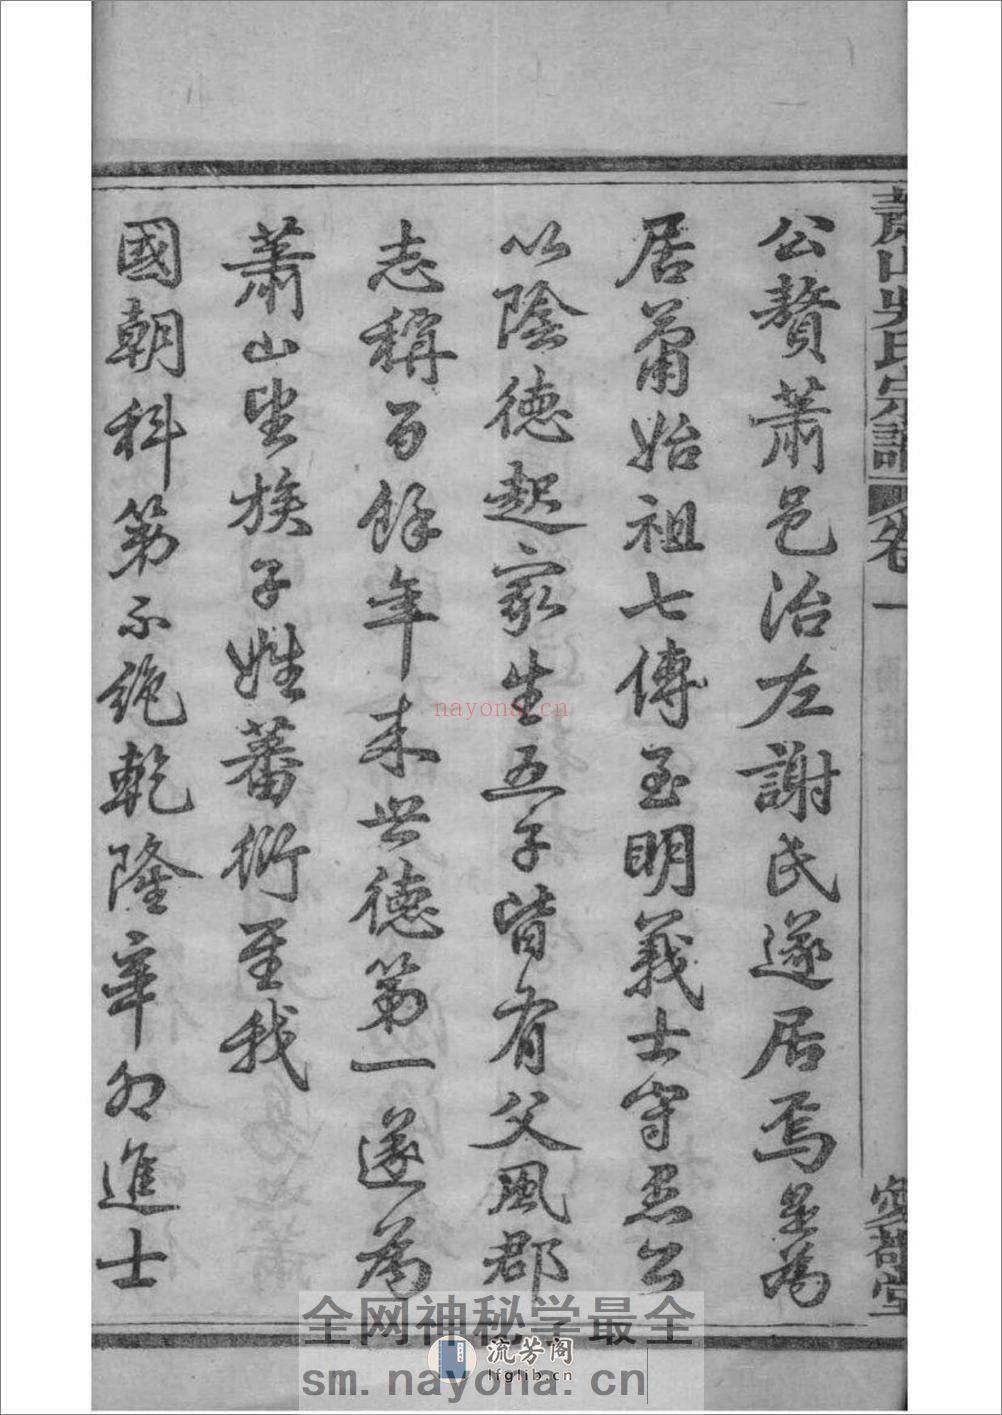 蕭山吳氏宗譜 卷一
公贅蕭邑治左謝氏遂居焉是為
居蕭始祖七傳至明義士守愚公
以陰德起家生五子皆有父風郡
志稱百餘年來世德第一遂為
蕭山望族子姓蕃衍至我
國朝科第不絕乾隆辛卯進士
nayona.cn
全网神秘学最全
流芳阁
lfglib.cn
sm.nayona.cn